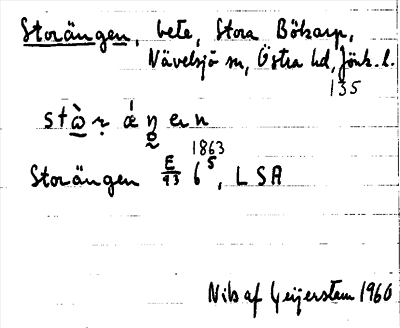 Storängen, bete, Stora Bökarp,
Nävelsjö sn, Östra hd, Jönk. l.
135
stὼṛ áŋ en
1863
Storängen E/93 6⁵, LSA
Nils af Geijerstam 1960